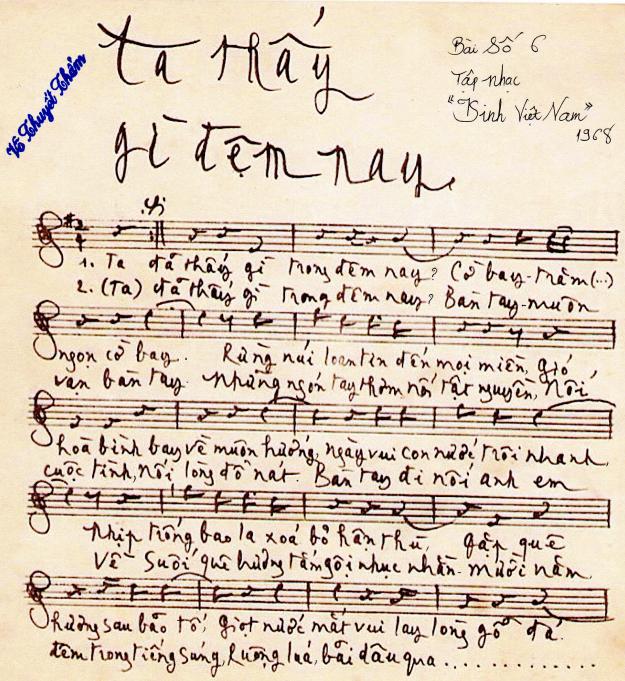 Ta thấy
gì đêm nay
Bài Số 6
Tập nhạc
"Kinh Việt Nam"
1968
Võ Thuyết Thảm
2
4
1. Ta đã thấy gì trong đêm nay? Cờ bay trăm (...)
2. (Ta) đã thấy gì trong đêm nay? Bàn tay muôn
ngọn cờ bay. Rừng núi loan tin đến mọi miền, gió
vạn bàn tay. Những ngón tay thơm nối tật nguyền, Nối
hoà bình bay về muôn hướng, ngày vui con nước trôi nhanh,
cuộc tình, nối lòng đổ nát. Bàn tay đi nối anh em
nhịp trống bao la xoá bỏ hận thù, gặp quê
Về suối quê hương tắm gội nhục nhằn mười năm
hương sau bão tố, giọt nước mắt vui lay lòng gỗ đá.
đêm trong tiếng súng, ruộng lúa, bãi dâu qua ............